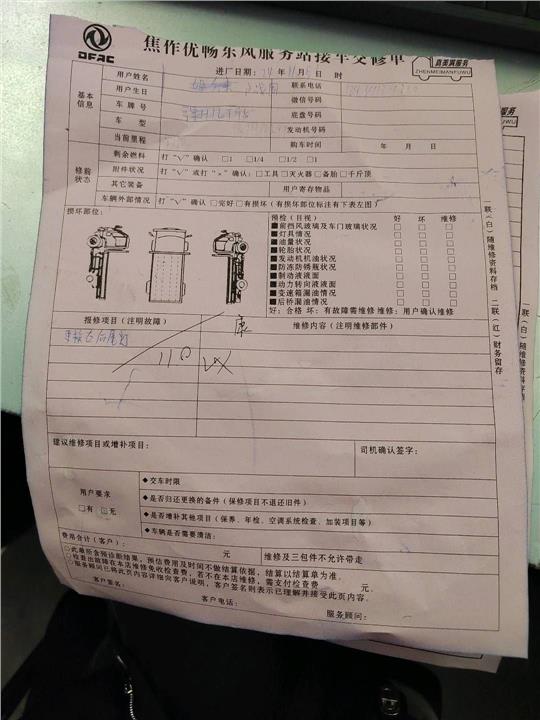 DFAC
焦作优畅东风服务站接车交修单
真美满服务
ZHENMEIMANFUWU
进厂日期: 年 11 月 日 时
基本信息
用户姓名
联系电话
用户生日
微信号码
车牌号
底盘号码
车 型
发动机号码
当前里程
购车时间 年 月 日
修前状态
剩余燃料 打“√”确认 □1 □1/4 □1/2 □1
附件状况 打“√”或打“×”确认:□工具□灭火器□备胎□千斤顶
其它装备 用户寄存物品
车辆外部情况 打“√”确认□完好□有损坏(有损坏部位标注有下表左图)
损坏部位:
预检(目视) 好 坏 维修
■前挡风玻璃及车门玻璃状况 □ □ □
■灯具情况 □ □ □
■油量状况 □ □ □
■轮胎状况 □ □ □
■发动机机油状况 □ □ □
■防冻防锈瓶状况 □ □ □
■制动液液面 □ □ □
■动力转向液液面 □ □ □
■变速箱漏油情况 □ □ □
■后桥漏油情况 □ □ □
好:合格 坏:有故障需维修 维修:用户确认维修
报修项目(注明故障) 康 维修内容(注明维修部件)
110
建议维修项目或增补项目:
司机确认签字:
用户要求
□有 □无
◆交车时限
◆是否归还更换的备件(保修项目不退还旧件)
◆是否增补其他项目(保养、年检、空调系统检查、加装项目等)
◆车辆是否需要清洁:
费用合计(客户): 元 维修及三包件不允许带走
○此单所含预诊断结果,预估费用及时间不做结算依据,结算以结算单为准。
○检查出故障在本店维修免收检查费,若不在本店维修,需支付检查费 元。
○服务顾问已将此页内容详细向客户说明,客户签名则表示已理解并接受此页内容。
客户签名:
客户电话:
服务顾问:
一联(白)随维修资料存档 二联(红)财务留存
服务
FUWU
一联(白)随维修资料存档